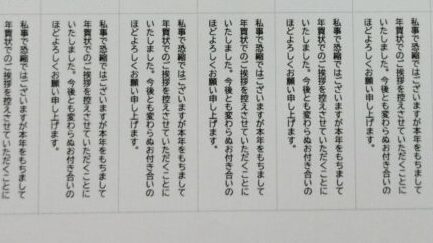 私事で恐縮ではございますが本年をもちまして
年賀状でのご挨拶を控えさせていただくことに
いたしました。今後とも変わらぬお付き合いの
ほどよろしくお願い申し上げます。
私事で恐縮ではございますが本年をもちまして
年賀状でのご挨拶を控えさせていただくことに
いたしました。今後とも変わらぬお付き合いの
ほどよろしくお願い申し上げます。
私事で恐縮ではございますが本年をもちまして
年賀状でのご挨拶を控えさせていただくことに
いたしました。今後とも変わらぬお付き合いの
ほどよろしくお願い申し上げます。
私事で恐縮ではございますが本年をもちまして
年賀状でのご挨拶を控えさせていただくことに
いたしました。今後とも変わらぬお付き合いの
ほどよろしくお願い申し上げます。
私事で恐縮ではございますが本年をもちまして
年賀状でのご挨拶を控えさせていただくことに
いたしました。今後とも変わらぬお付き合いの
ほどよろしくお願い申し上げます。
私事で恐縮ではございますが本年をもちまして
年賀状でのご挨拶を控えさせていただくことに